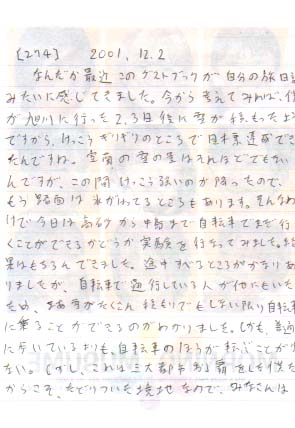 [274] 2001, 12. 2
なんだか最近このゲストブックが自分の旅日誌
みたいに感じてきました。今から考えてみれば、僕
が旭川に行った2,3日後に雪が積もったよう
ですから、けっこうぎりぎりのところで日本 達成でき
たんですね。 雪の量はそれほどでもない
んですが、この間けっこう強いのが降ったので、
もう路面は氷がはってるところもあります。そんなわ
けで今日は高砂から中島まで自転車でまだ行
くことができるかどうか実験を行なってみました。結
果はもちろんできました。途中すべるところがかなりあ
りましたが、自転車で通行している人が他にもいた
ため、まあ雪がたくさん積もりでもしない限り自転車
に乗ることができるのがわかりました。しかも、普通
に歩いているよりも、自転車のほうが転ぶことが少
ない。(しかし、これは三大都市 制覇をした僕だ
からこそ、たどりついた境地なので、みなさんは